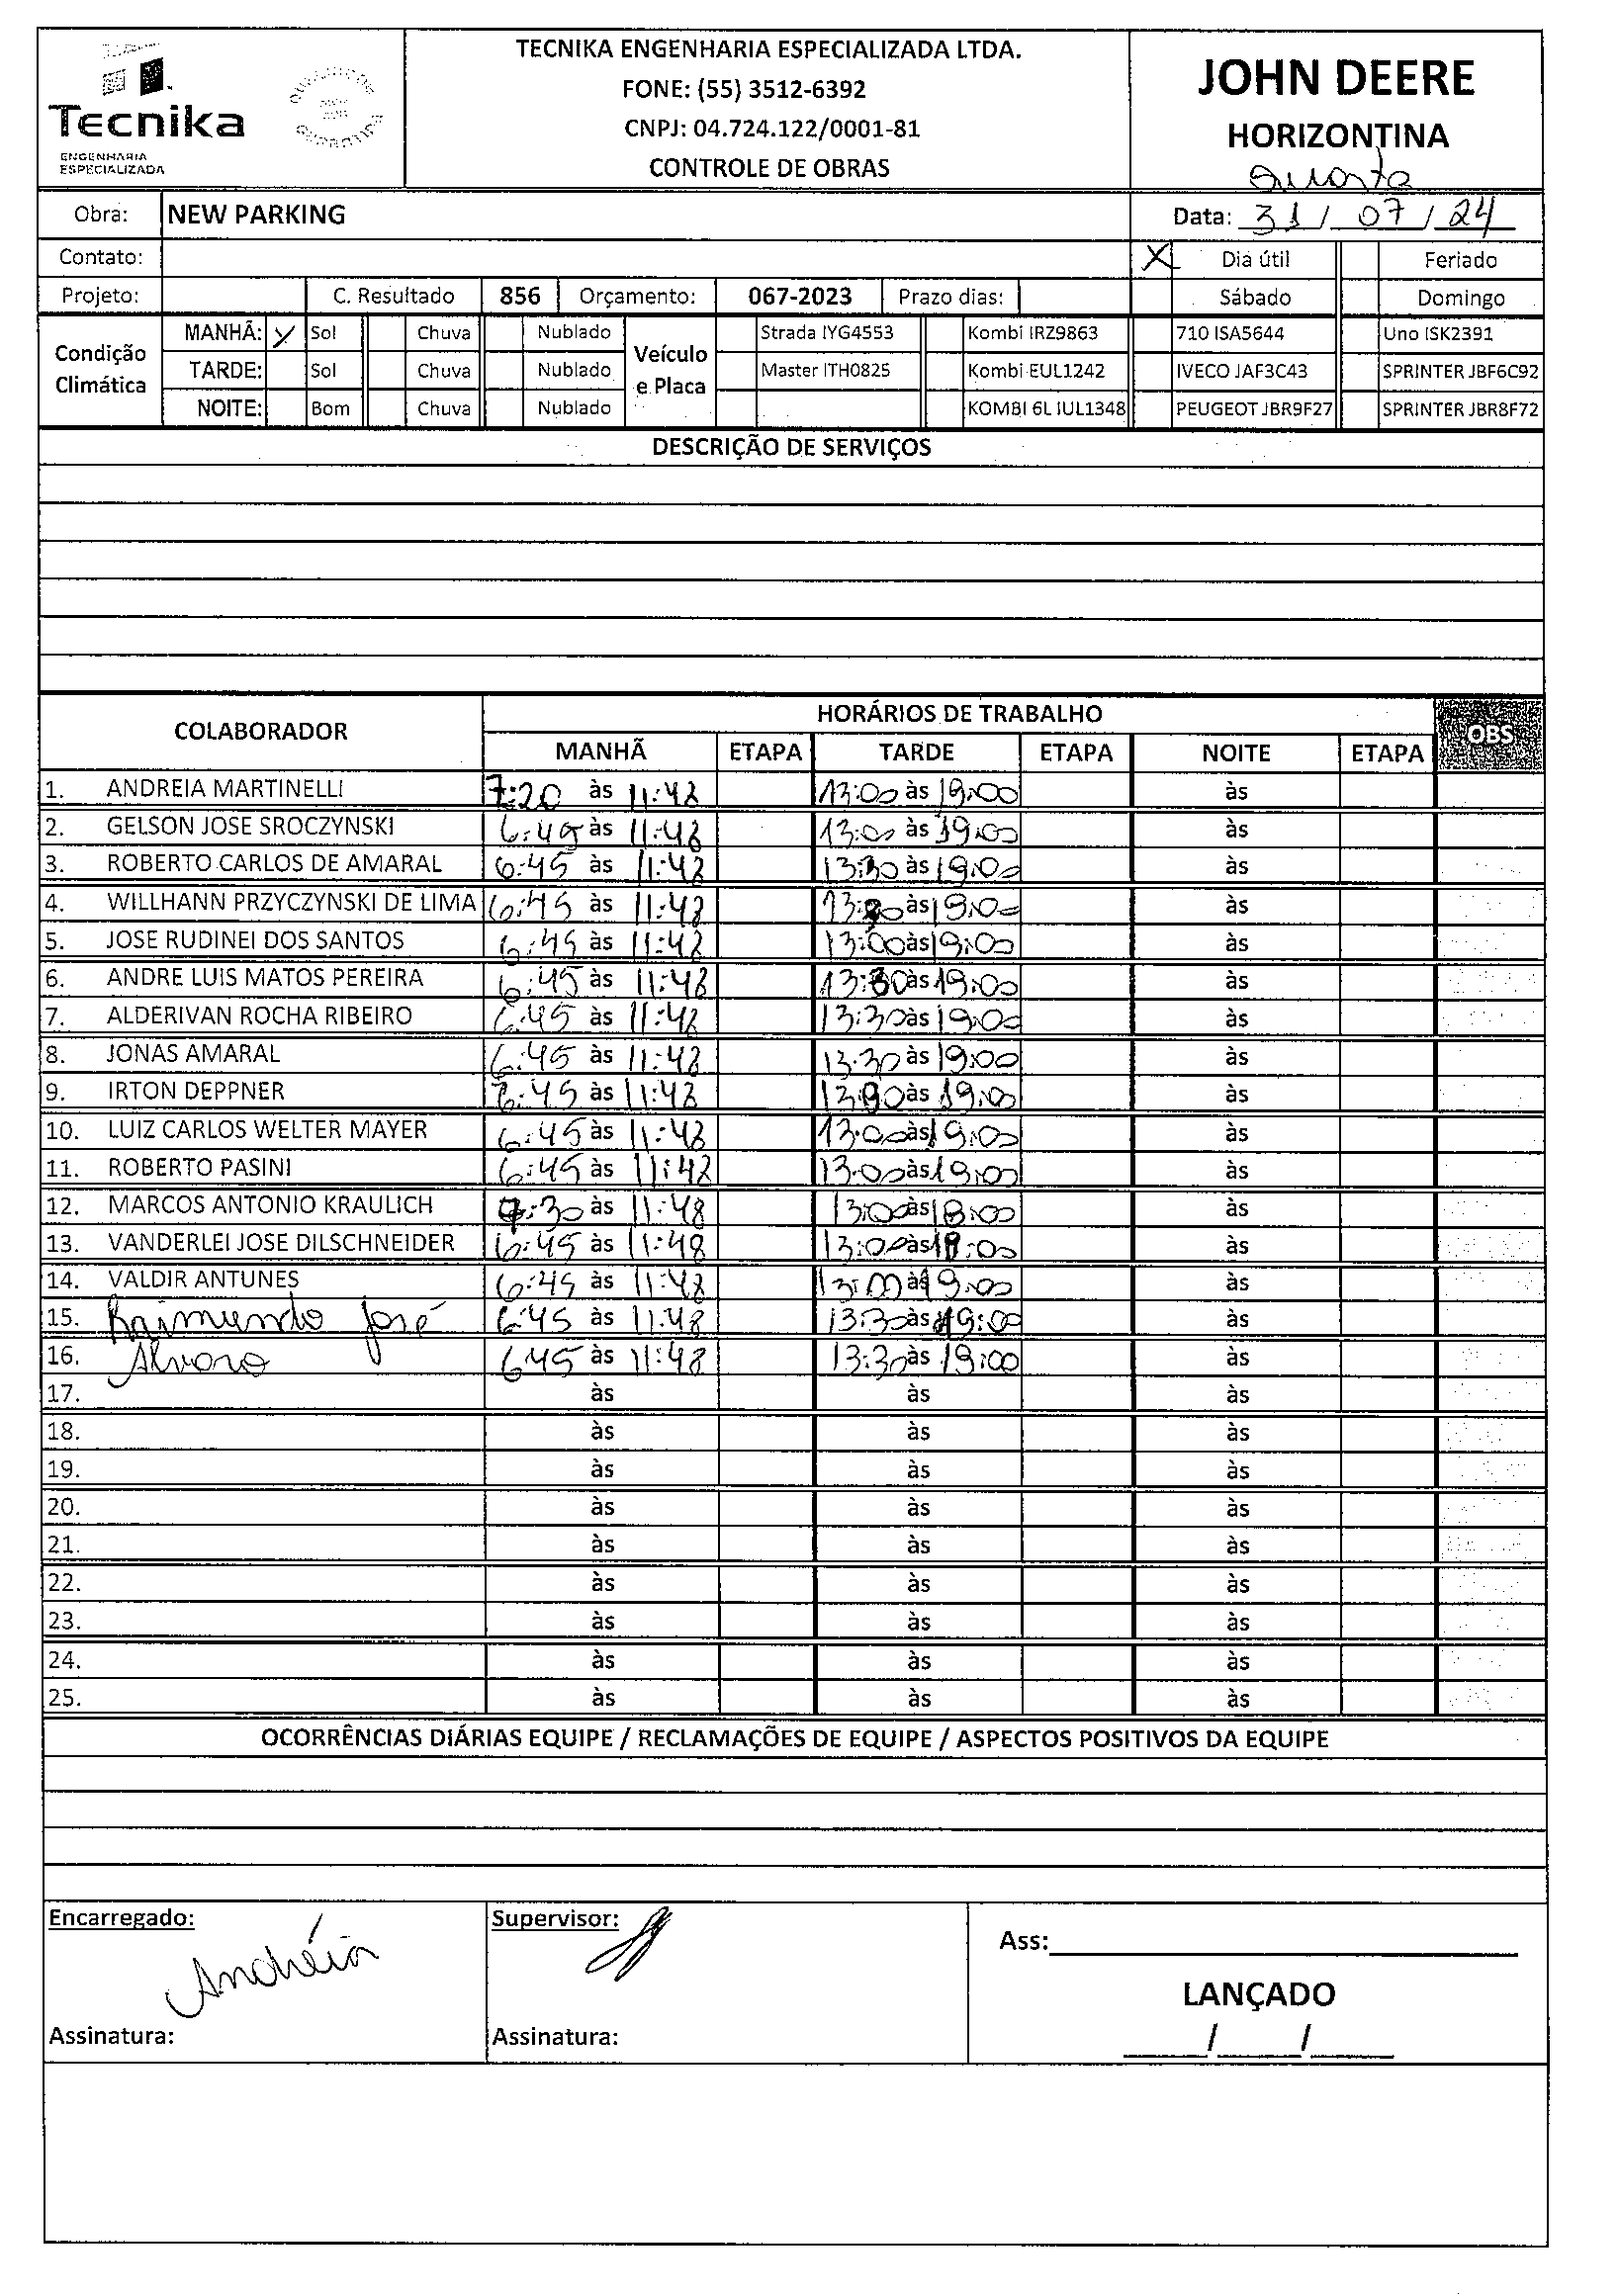 Tecnika
ENGENHARIA
ESPECIALIZADA
TECNIKA ENGENHARIA ESPECIALIZADA LTDA.
FONE: (55) 3512-6392
CNPJ: 04.724.122/0001-81
CONTROLE DE OBRAS
JOHN DEERE
HORIZONTINA
quarta
Obra: NEW PARKING Data: 31/07/24
Contato: X Dia útil Feriado
Projeto: C. Resultado 856 Orçamento: 067-2023 Prazo dias: Sábado Domingo
Condição Climática
MANHÃ: X Sol Chuva Nublado
TARDE: Sol Chuva Nublado
NOITE: Bom Chuva Nublado
Veículo e Placa
Strada IYG4553 Kombi IRZ9863 710 ISA5644 Uno ISK2391
Master ITH0825 Kombi EUL1242 IVECO JAF3C43 SPRINTER JBF6C92
KOMBI 6L IUL1348 PEUGEOT JBR9F27 SPRINTER JBR8F72
DESCRIÇÃO DE SERVIÇOS
COLABORADOR HORÁRIOS DE TRABALHO OBS
MANHÃ ETAPA TARDE ETAPA NOITE ETAPA
1. ANDREIA MARTINELLI 7:20 às 11:48 13:00 às 19:00 às
2. GELSON JOSE SROCZYNSKI 6:45 às 11:48 13:00 às 19:00 às
3. ROBERTO CARLOS DE AMARAL 6:45 às 11:48 13:30 às 19:00 às
4. WILLHANN PRZYCZYNSKI DE LIMA 6:45 às 11:48 às 19:00 às
5. JOSE RUDINEI DOS SANTOS 6:45 às 11:48 13:00 às 19:00 às
6. ANDRE LUIS MATOS PEREIRA 6:45 às 11:48 13:30 às 19:00 às
7. ALDERIVAN ROCHA RIBEIRO 6:45 às 11:48 13:30 às 19:00 às
8. JONAS AMARAL 6:45 às 11:48 13:30 às 19:00 às
9. IRTON DEPPNER às 11:48 às 19:00 às
10. LUIZ CARLOS WELTER MAYER 6:45 às 11:48 13:00 às 19:00 às
11. ROBERTO PASINI 6:45 às 11:48 13:00 às 19:00 às
12. MARCOS ANTONIO KRAULICH 7:30 às 11:48 13:00 às 18:00 às
13. VANDERLEI JOSE DILSCHNEIDER 6:45 às 11:48 13:00 às às
14. VALDIR ANTUNES 6:45 às 11:48 13:00 às 19:00 às
15. Raimundo José 6:45 às 11:48 13:30 às 19:00 às
16. Alvaro 6:45 às 11:48 13:30 às 19:00 às
17. às às às
18. às às às
19. às às às
20. às às às
21. às às às
22. às às às
23. às às às
24. às às às
25. às às às
OCORRÊNCIAS DIÁRIAS EQUIPE / RECLAMAÇÕES DE EQUIPE / ASPECTOS POSITIVOS DA EQUIPE
Encarregado: Supervisor: Ass:
Andréia
LANÇADO
Assinatura: Assinatura: / /